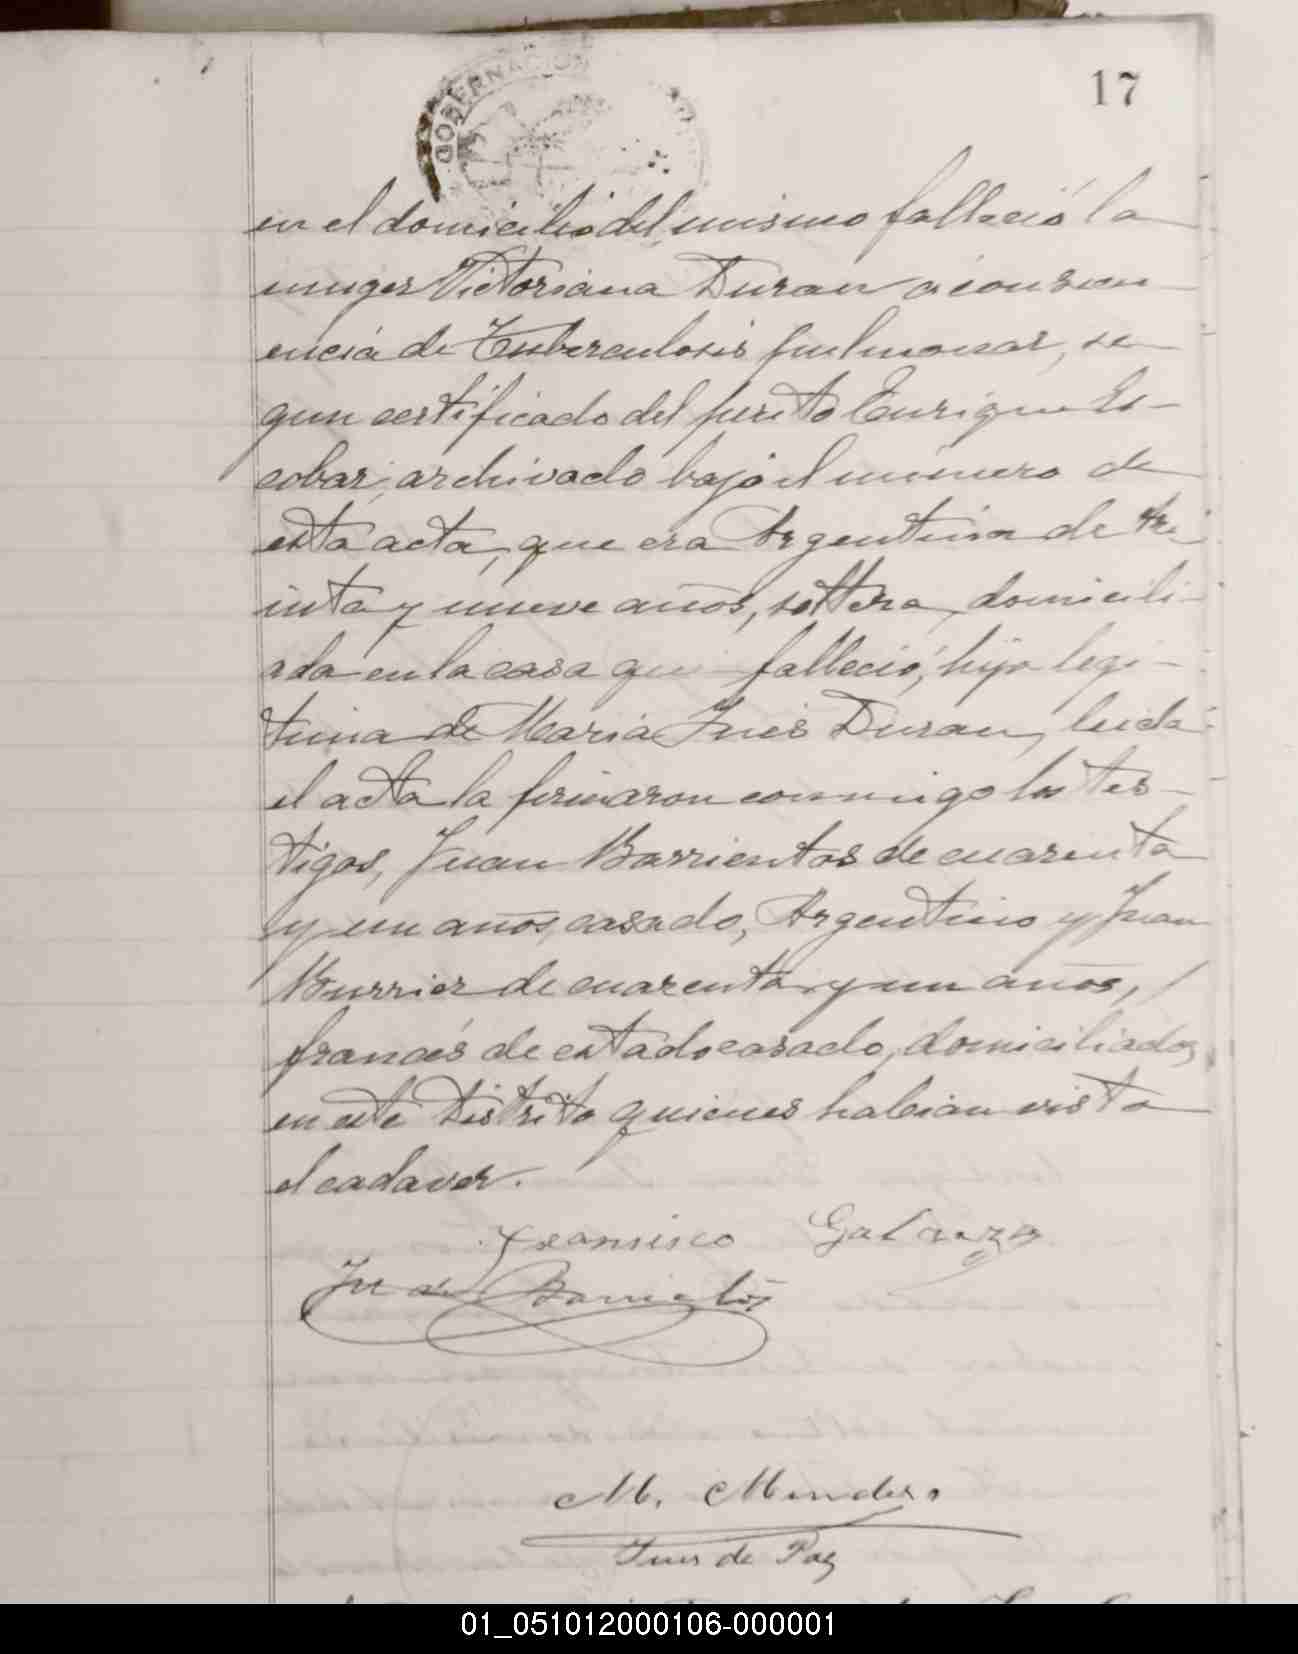 GOBERNACION
17
en el domicilio del mismo falleció la
muger Victoriana Duran a consecu
encia de Tuberculosis pulmonar, se
gun certificado del perito Enrique Es-
cobar, archivado bajo el número de
esta acta, que era Argentina de tre
inta y nueve años, soltera, domicili-
ada en la casa que falleció, hija legi-
tima de Maria Inés Duran, leida
el acta la firmaron conmigo los tes-
tigos, Juan Barrientos de cuarenta
y un años, casado, Argentino y Juan
Burrier de cuarenta y un años,
francés de estado casado, domiciliados
en este Distrito quienes habian visto
el cadaver.
Francisco Galarza
Juan Barrientos
M. Mendes
Juez de Paz
01_051012000106-000001